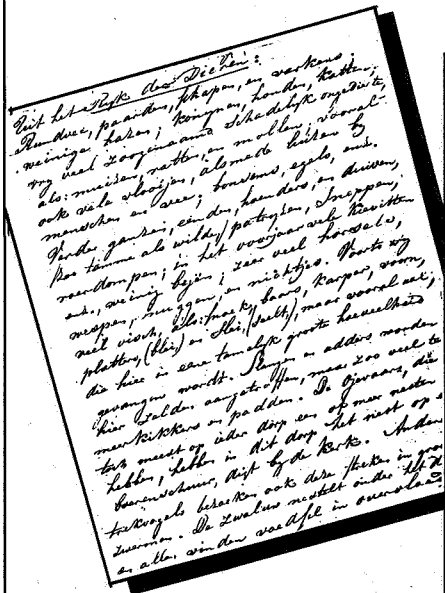 Uit het Ryk der Dieren:
Rundvee, paarden, schapen, en varkens;
weinige hazen; konynen, honden, katten,
vry veel zoogenaamd schadelyk ongedierte,
als: muizen, ratten en mollen; vooral
ook vele vlooijen, alsmede luizen by
menschen en vee; bovendien, egels, enz.
Verder ganzen, eenden, hoenders, en duiven,
zoo tamme als wilde; patryzen, sneppen,
roerdompen; in het voorjaar vele kievitten
enz., weinig bejen; zeer veel horsels,
wespen, muggen en nichtjes. Voorts vry
veel visch, als: snoek, baars, karper, voorn,
platters, (blei,) en slei, (zeelt,) maar vooral aal,
die hier in eene tamelyk groote hoeveelheid
gevangen wordt. Slangen en adders worden
hier zelden aangetroffen, maar zoo veel te
meer kikkers en padden. De Ojevaars, die
toch meest op ieder dorp een of meer nesten
hebben, hebben in dit dorp het nest op
boerenschuur, digt by de kerk. Andere
trekvogels bezoeken ook deze streken in
zwermen. De zwaluw nestelt onder
en allen vinden voedsel in overvloed.